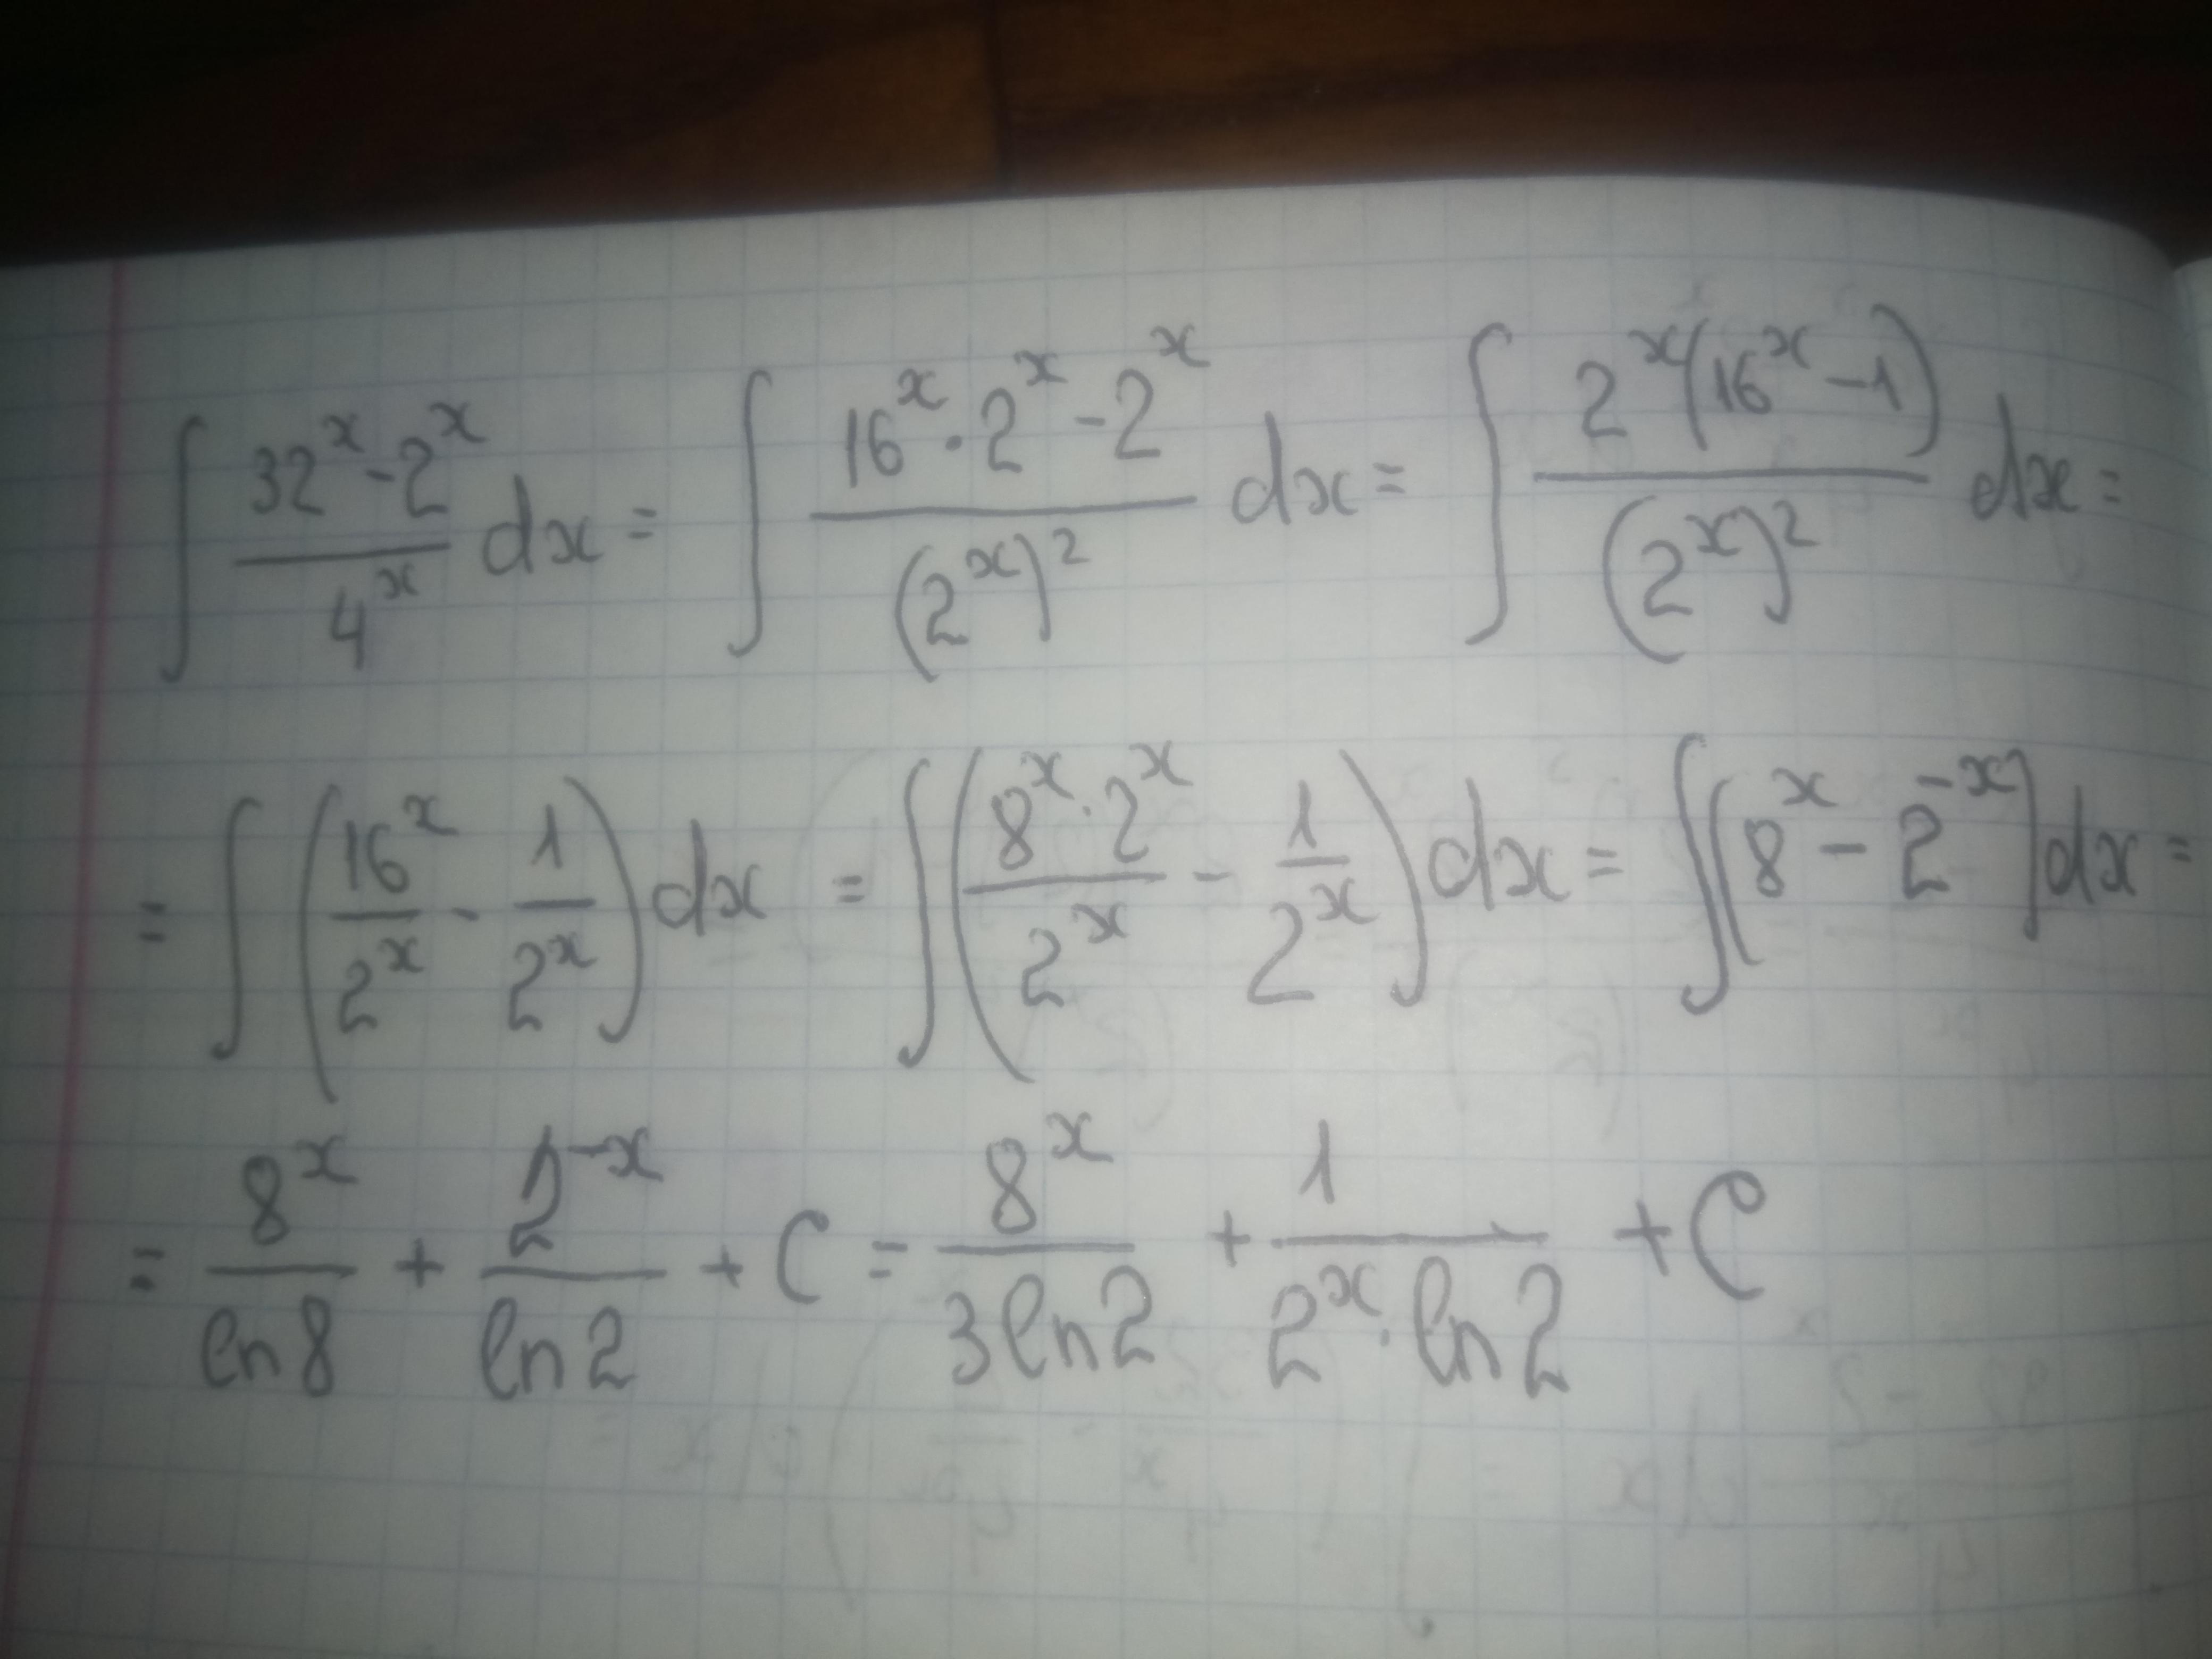 ∫ (32^x - 2^x)/(4^x) dx = ∫ (16^x · 2^x - 2^x)/((2^x)^2) dx = ∫ (2^x(16^x - 1))/((2^x)^2) dx =
= ∫ (16^x/2^x - 1/2^x) dx = ∫ ((8^x · 2^x)/2^x - 1/2^x) dx = ∫ [8^x - 2^-x] dx =
= 8^x/ln8 + 2^-x/ln2 + C = 8^x/(3ln2) + 1/(2^x · ln2) + C